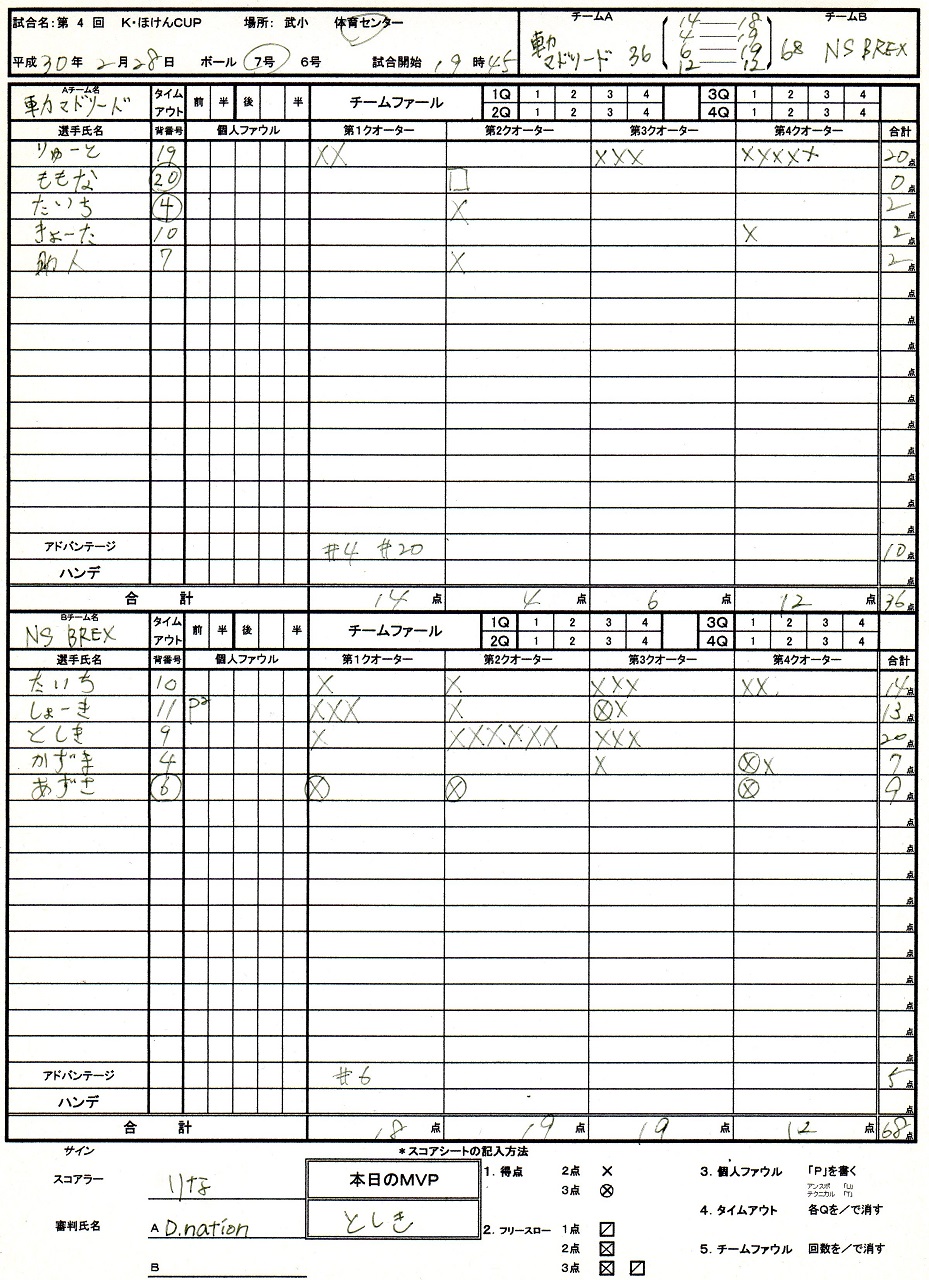 試合名:第 4 回 K・ほけんCUP 場所: 武小 体育センター
平成 30 年 2 月 28 日 ボール 7号 6号 試合開始 19 時 45
チームA チームB
マドリード 36 68 NS BREX
14 — 18
4 — 19
6 — 19
12 — 12
Aチーム名 マドリード タイムアウト 前 半 後 半 チームファール 1Q 1 2 3 4 3Q 1 2 3 4
2Q 1 2 3 4 4Q 1 2 3 4
選手氏名 背番号 個人ファウル 第1クオーター 第2クオーター 第3クオーター 第4クオーター 合計
りゅーと 19 XX XXX XXXXX 20点
ももな 20 □ 0点
たいち 4 X 2点
きょーた 10 X 2点
助人 7 X 2点
点
点
点
点
点
点
点
点
点
点
アドバンテージ #4 #20 10点
ハンデ 点
合 計 14 点 4 点 6 点 12 点 36点
Bチーム名 NS BREX タイムアウト 前 半 後 半 チームファール 1Q 1 2 3 4 3Q 1 2 3 4
2Q 1 2 3 4 4Q 1 2 3 4
選手氏名 背番号 個人ファウル 第1クオーター 第2クオーター 第3クオーター 第4クオーター 合計
たいち 10 X X XXX XX 14点
しょーき 11 P2 XXX X ⊗X 13点
としき 9 X XXXXXX XXX 20点
かずま 4 X ⊗X 7点
あずさ 6 ⊗ ⊗ ⊗ 9点
点
点
点
点
点
点
点
点
点
点
アドバンテージ #6 5点
ハンデ 点
合 計 18 点 19 点 19 点 12 点 68点
サイン
スコアラー りな
審判氏名 A D.nation
B
本日のMVP
としき
*スコアシートの記入方法
1. 得点 2点 ×
3点 ⊗
2. フリースロー 1点 ☐
2点 ☒
3点 ☒ ☐
3. 個人ファウル 「P」を書く
アンスポ 「U」
テクニカル 「T」
4. タイムアウト 各Qを/で消す
5. チームファウル 回数を/で消す